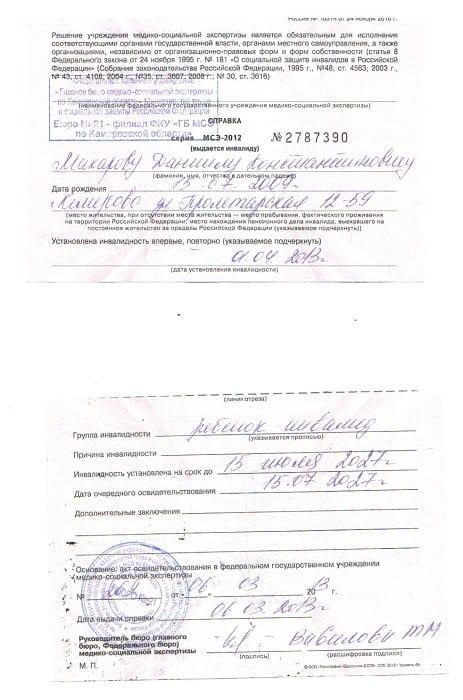 России № 1031н от 24 ноября 2010 г.
Решение учреждения медико-социальной экспертизы является обязательным для исполнения
соответствующими органами государственной власти, органами местного самоуправления, а также
организациями, независимо от организационно-правовых форм и форм собственности (статья 8
Федерального закона от 24 ноября 1995 г. № 181 «О социальной защите инвалидов в Российской
Федерации» (Собрание законодательства Российской Федерации, 1995 г., №48, ст. 4563; 2003 г.,
№ 43, ст. 4108; 2004 г., №35, ст. 3607, 2008 г.; № 30, ст. 3616)
«Главное бюро медико-социальной экспертизы
по Кемеровской области» Министерства труда
и социальной защиты Российской Федерации
(наименование федерального государственного учреждения медико-социальной экспертизы)
Бюро № 21 - филиал ФКУ «ГБ МСЭ
по Кемеровской области»
СПРАВКА
серия МСЭ-2012 № 2787390
(выдается инвалиду)
Макарову Даниилу Константиновичу
(фамилия, имя, отчество в дательном падеже)
Дата рождения 15.07.2009г.
Кемерово ул Пролетарская 12-59
(место жительства, при отсутствии места жительства — место пребывания, фактического проживания
на территории Российской Федерации, место нахождения пенсионного дела инвалида, выехавшего на
постоянное жительство за пределы Российской Федерации (указываемое подчеркнуть))
Установлена инвалидность впервые, повторно (указываемое подчеркнуть)
01.04 2013г.
(дата установления инвалидности)
(линия отреза)
Группа инвалидности ребенок инвалид
(указывается прописью)
Причина инвалидности
Инвалидность установлена на срок до 15 июля 2027г
Дата очередного освидетельствования 15.07 2027г
Дополнительные заключения
Основание: акт освидетельствования в федеральном государственном учреждении
медико-социальной экспертизы
№ от 06 03 20 13 г.
Дата выдачи справки 06 03 2013г.
Руководитель бюро (главного
бюро, Федерального бюро)
медико-социальной экспертизы Вавилова ТМ
(подпись) (расшифровка подписи)
М. П.